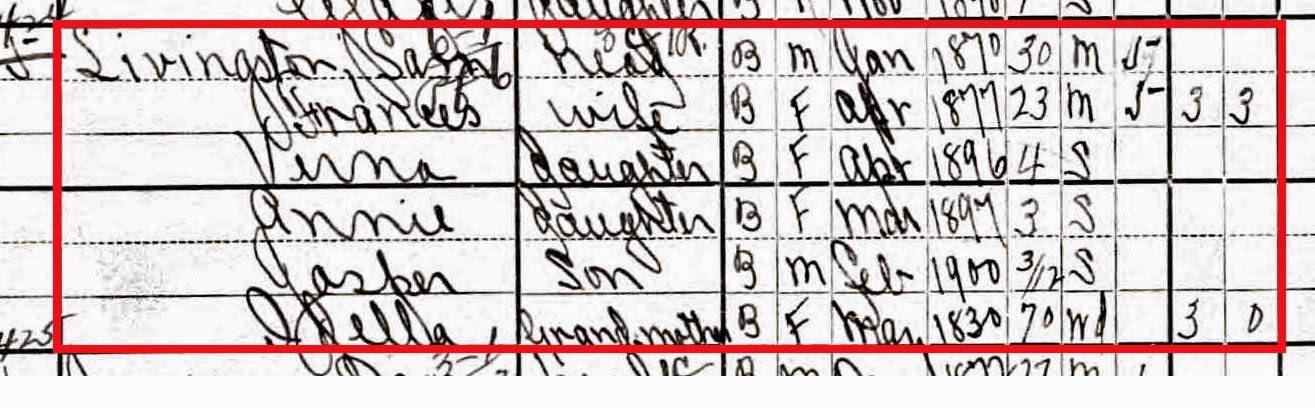 Daughter B
Livingston, Sam Head B M Jan 1870 30 M 5
Frances Wife B F Apr 1877 23 M 5 3 3
Verna Daughter B F Apr 1896 4 S
Annie Daughter B F Mar 1897 3 S
Jasper Son B M Feb 1900 3/12 S
Della Grandmother B F Mar 1830 70 Wd 3 0
425